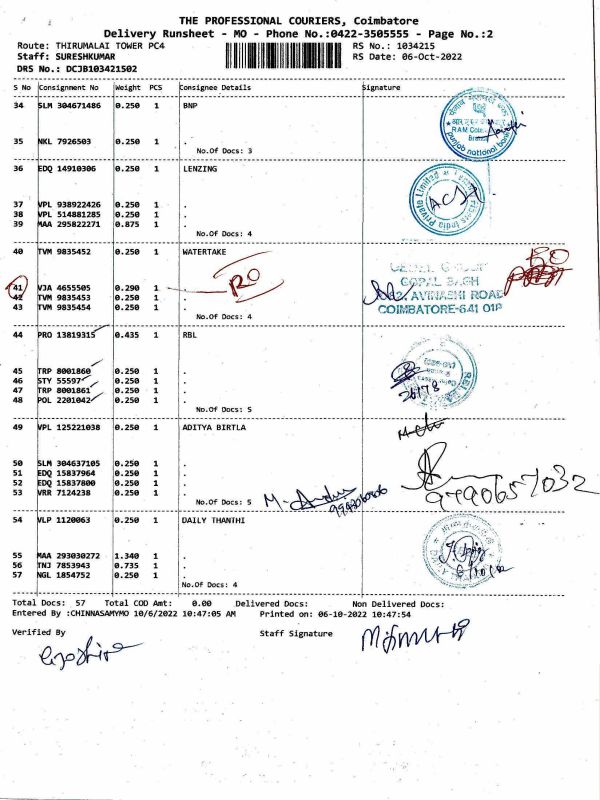 THE PROFESSIONAL COURIERS, Coimbatore
Delivery Runsheet - MO - Phone No.:0422-3505555 - Page No.:2
Route: THIRUMALAI TOWER PC4 RS No.: 1034215
Staff: SURESHKUMAR RS Date: 06-Oct-2022
DRS No.: DCJB103421502
S No Consignment No Weight PCS Consignee Details Signature
34 SLM 304671486 0.250 1 BNP
35 NKL 7926503 0.250 1 .
No.Of Docs: 3
punjab national bank
36 EDQ 14910306 0.250 1 LENZING
37 VPL 938922426 0.250 1 .
38 VPL 514881285 0.250 1 .
39 MAA 295822271 0.875 1 .
No.Of Docs: 4
Private Limited
40 TVM 9835452 0.250 1 WATERTAKE
41 VJA 4655505 0.290 1 .
RO
RO
42 TVM 9835453 0.250 1 .
43 TVM 9835454 0.250 1 .
No.Of Docs: 4
GOPAL BAGH
AVINASHI ROAD
COIMBATORE-641 018
44 PRO 13819315 0.435 1 RBL
45 TRP 8001860 0.250 1 .
46 STY 55597 0.250 1 .
47 TRP 8001861 0.250 1 .
48 POL 2201042 0.250 1 .
No.Of Docs: 5
26178
49 VPL 125221038 0.250 1 ADITYA BIRTLA
50 SLM 304637105 0.250 1 .
51 EDQ 15837964 0.250 1 .
52 EDQ 15837800 0.250 1 .
53 VRR 7124238 0.250 1 .
No.Of Docs: 5
9790657032
54 VLP 1120063 0.250 1 DAILY THANTHI
55 MAA 293030272 1.340 1 .
56 TNJ 7853943 0.735 1 .
57 NGL 1854752 0.250 1 .
No.Of Docs: 4
Total Docs: 57 Total COD Amt: 0.00 Delivered Docs: Non Delivered Docs:
Entered By :CHINNASAMYMO 10/6/2022 10:47:05 AM Printed on: 06-10-2022 10:47:54
Verified By Staff Signature